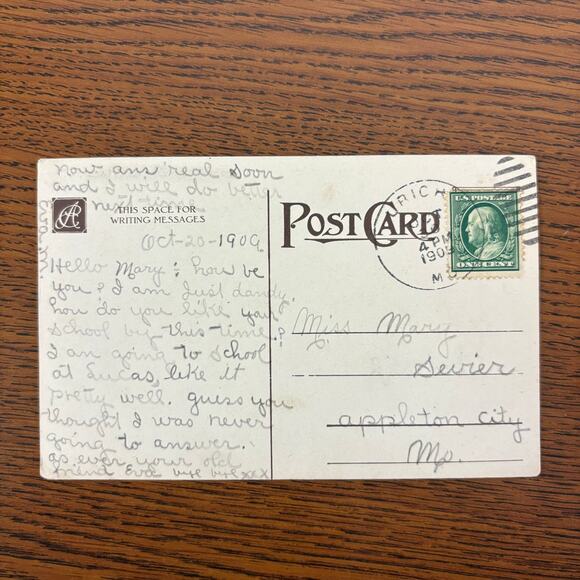 now ans real soon
and I will do better
next time
THIS SPACE FOR
WRITING MESSAGES
Oct-20-1909
Hello Mary: how're
you? I am Just dandy.
how do you like your
School by this time?
I am going to School
at Lucas, like it
pretty well. guess you
thought I was never
going to answer.
as ever your old
friend Eva bye bye xxx
POST CARD
RICH
4 PM
1909
MO
U.S. POSTAGE
ONE CENT
Miss Mary
Sevier
appleton City
Mo.